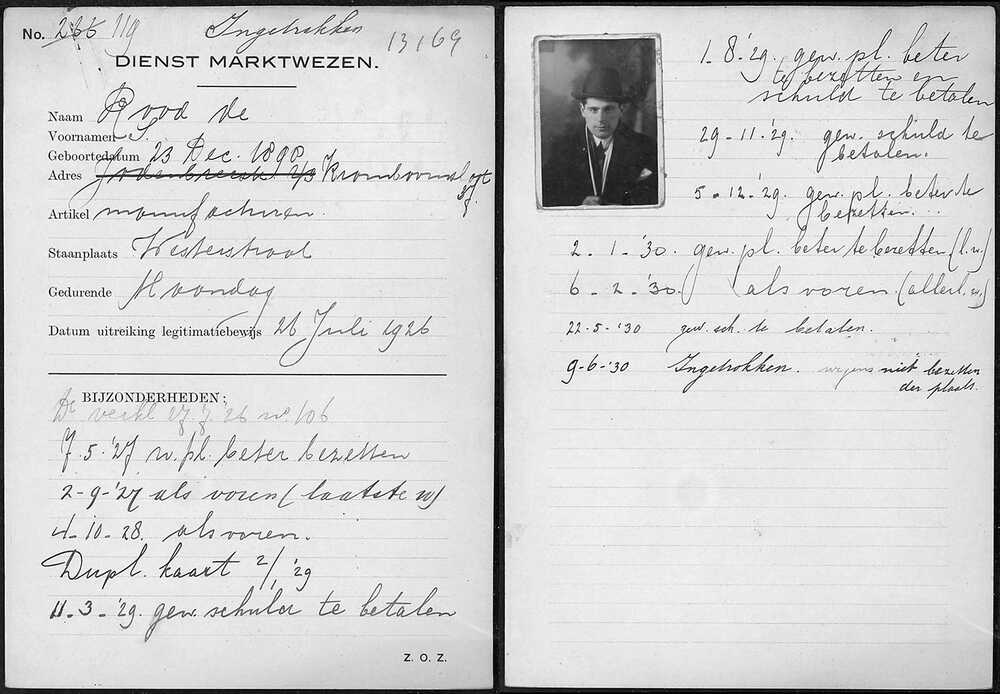 No. 266 119 Ingetrokken 13169
DIENST MARKTWEZEN.
Naam Rood de
Voornamen S.
Geboortedatum 23 Dec. 1890
Adres Jodenbreestr 2/3 Kromboomsl
Artikel manufacturen.
Staanplaats Westerstraat
Gedurende Maandag
Datum uitreiking legitimatiebewijs 26 Juli 1926
BIJZONDERHEDEN:
verkl 27.7.26 no 106
7.5.'27 w. pl. beter bezetten
2-9-'27 als voren (laatste w)
4-10-28. als voren.
Dupl. kaart 2/1 '29
11-3-'29. gew. schuld te betalen
Z. O. Z.
1-8-'29. gew. pl. beter
te bezetten en
schuld te betalen
29-11-'29. gew. schuld te
betalen.
5-12-'29. gew. pl. beter te
bezetten...
2-1-'30. gew. pl. beter te bezetten (l.w.)
6-2-'30. als voren (allerl. w.)
22-5-'30 gew. sch. te betalen.
9-6-'30 Ingetrokken. wegens niet bezetten
der plaats.